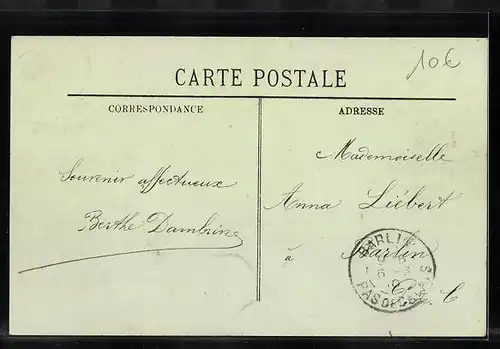 10€
CARTE POSTALE
CORRESPONDANCE
ADRESSE
Souvenir affectueux
Berthe Dambrine
Mademoiselle
Anna Liébert
à Barlin
P. de C.
BARLIN
PAS DE CALAIS